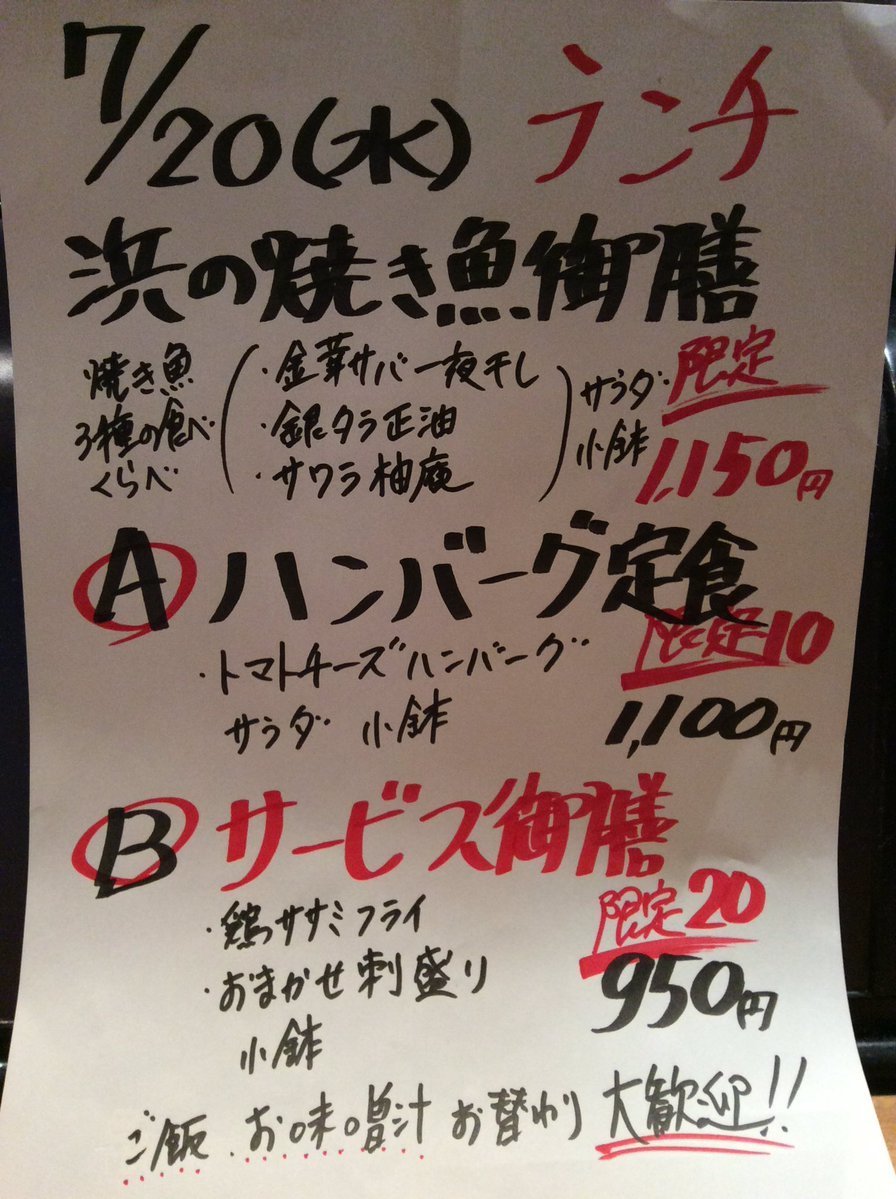 7/20(水) ランチ
浜の焼き魚御膳
焼き魚
3種の食べ
くらべ
・金華サバ一夜干し
・銀タラ正油
・サワラ柚庵
サラダ
小鉢
限定
1,150円
Ⓐ ハンバーグ定食
・トマトチーズハンバーグ
サラダ 小鉢
限定10
1,100円
Ⓑ サービス御膳
・鶏ササミフライ
・おまかせ刺盛り
小鉢
限定20
950円
ご飯、お味噌汁 お替わり 大歓迎!!